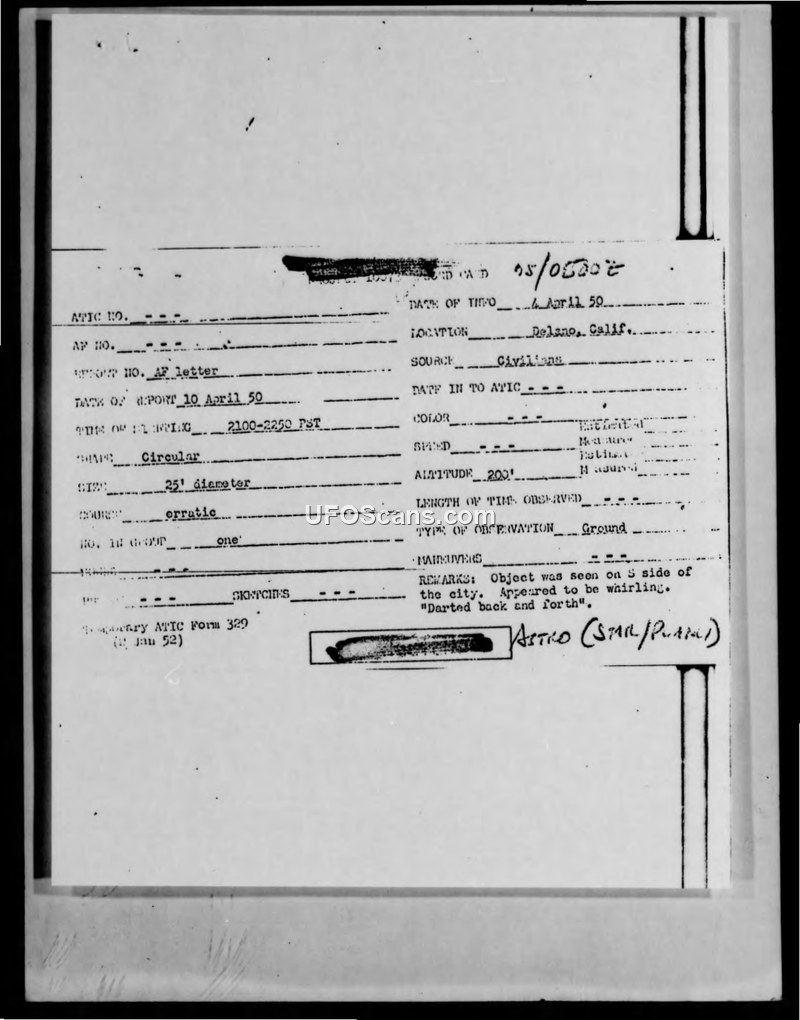 05/0500Z
ATIC NO. - - -
DATE OF INFO 4 April 50
AF NO. - - -
LOCATION Delano, Calif.
REPORT NO. AF letter
SOURCE Civilians
DATE OF REPORT 10 April 50
DATE IN TO ATIC - - -
TIME OF SIGHTING 2100-2250 PST
COLOR - - -
Estimated
SHAPE Circular
SPEED - - -
Measured
Estimated
SIZE 25' diameter
ALTITUDE 200'
Measured
COURSE erratic
LENGTH OF TIME OBSERVED - - -
UFOScans.com
NO. IN GROUP one
TYPE OF OBSERVATION Ground
- - -
MANEUVERS - - -
- - - SKETCHES - - -
REMARKS: Object was seen on S side of
the city. Appeared to be whirling.
"Darted back and forth".
Temporary ATIC Form 329
(2 Jan 52)
ASTRO (STAR/PLANET)